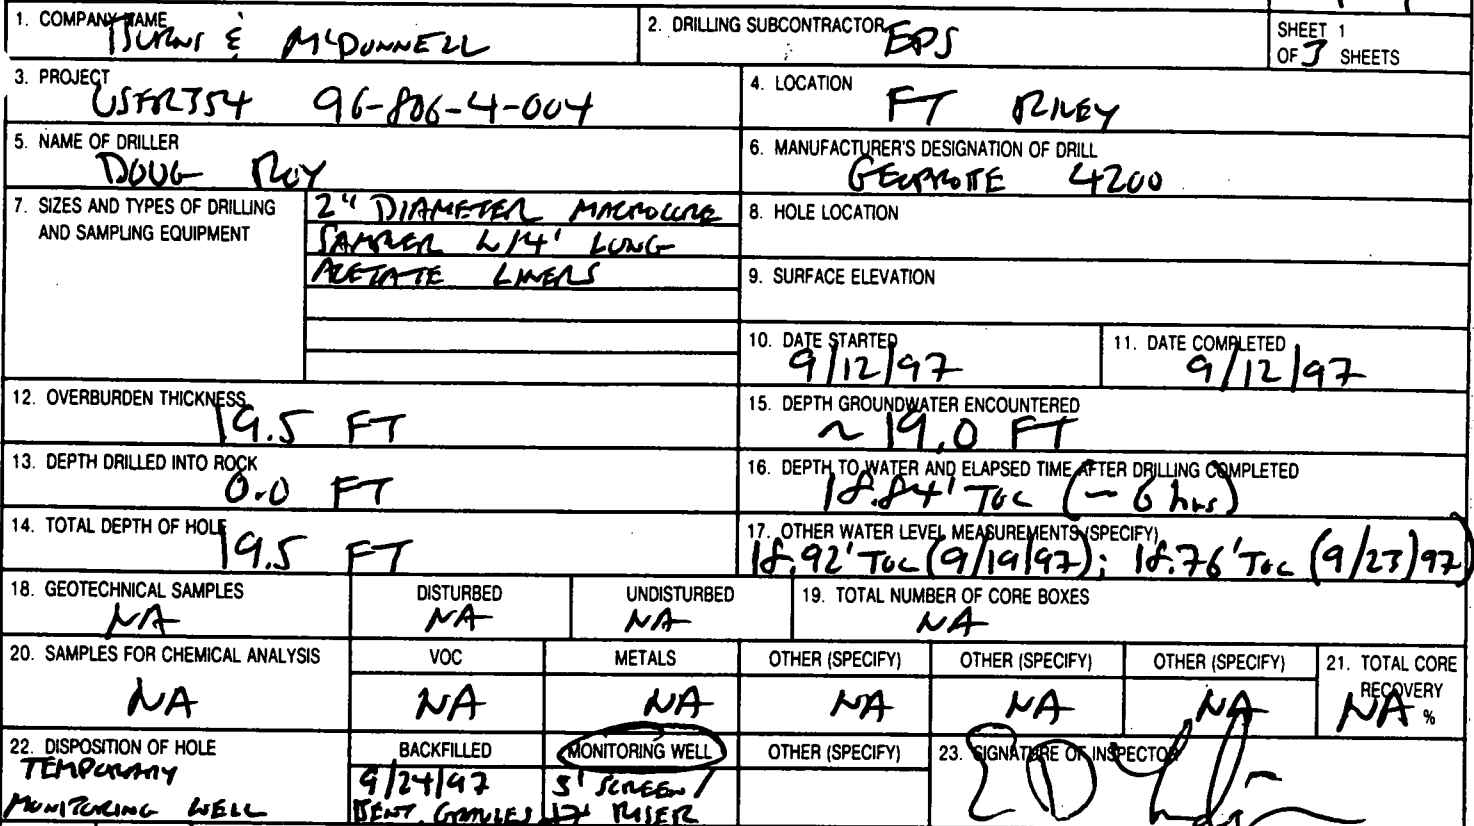 1. COMPANY NAME BURNS & McDONNELL
2. DRILLING SUBCONTRACTOR EPS
SHEET 1
OF 3 SHEETS
3. PROJECT USFR354 96-806-4-004
4. LOCATION FT RILEY
5. NAME OF DRILLER DOUG ROY
6. MANUFACTURER'S DESIGNATION OF DRILL GEOPROBE 4200
7. SIZES AND TYPES OF DRILLING
AND SAMPLING EQUIPMENT
2" DIAMETER MACROCORE
SAMPLER W/4' LONG
ACETATE LINERS
8. HOLE LOCATION
9. SURFACE ELEVATION
10. DATE STARTED 9/12/97
11. DATE COMPLETED 9/12/97
12. OVERBURDEN THICKNESS 19.5 FT
15. DEPTH GROUNDWATER ENCOUNTERED ~ 19.0 FT
13. DEPTH DRILLED INTO ROCK 0.0 FT
16. DEPTH TO WATER AND ELAPSED TIME AFTER DRILLING COMPLETED
18.84' TOC (~ 6 hrs)
14. TOTAL DEPTH OF HOLE 19.5 FT
17. OTHER WATER LEVEL MEASUREMENTS (SPECIFY)
18.92' TOC (9/19/97); 18.76' TOC (9/23/97)
18. GEOTECHNICAL SAMPLES NA
DISTURBED NA
UNDISTURBED NA
19. TOTAL NUMBER OF CORE BOXES NA
20. SAMPLES FOR CHEMICAL ANALYSIS NA
VOC NA
METALS NA
OTHER (SPECIFY) NA
OTHER (SPECIFY) NA
OTHER (SPECIFY) NA
21. TOTAL CORE
RECOVERY
NA %
22. DISPOSITION OF HOLE
TEMPORARY
MONITORING WELL
BACKFILLED
9/24/97
BENT. GRANULES
MONITORING WELL
5' SCREEN/
17' RISER
OTHER (SPECIFY)
23. SIGNATURE OF INSPECTOR